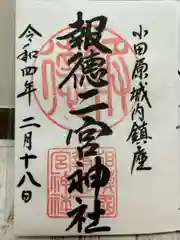 小田原城内鎮座
報徳二宮神社
令和四年 二月十八日